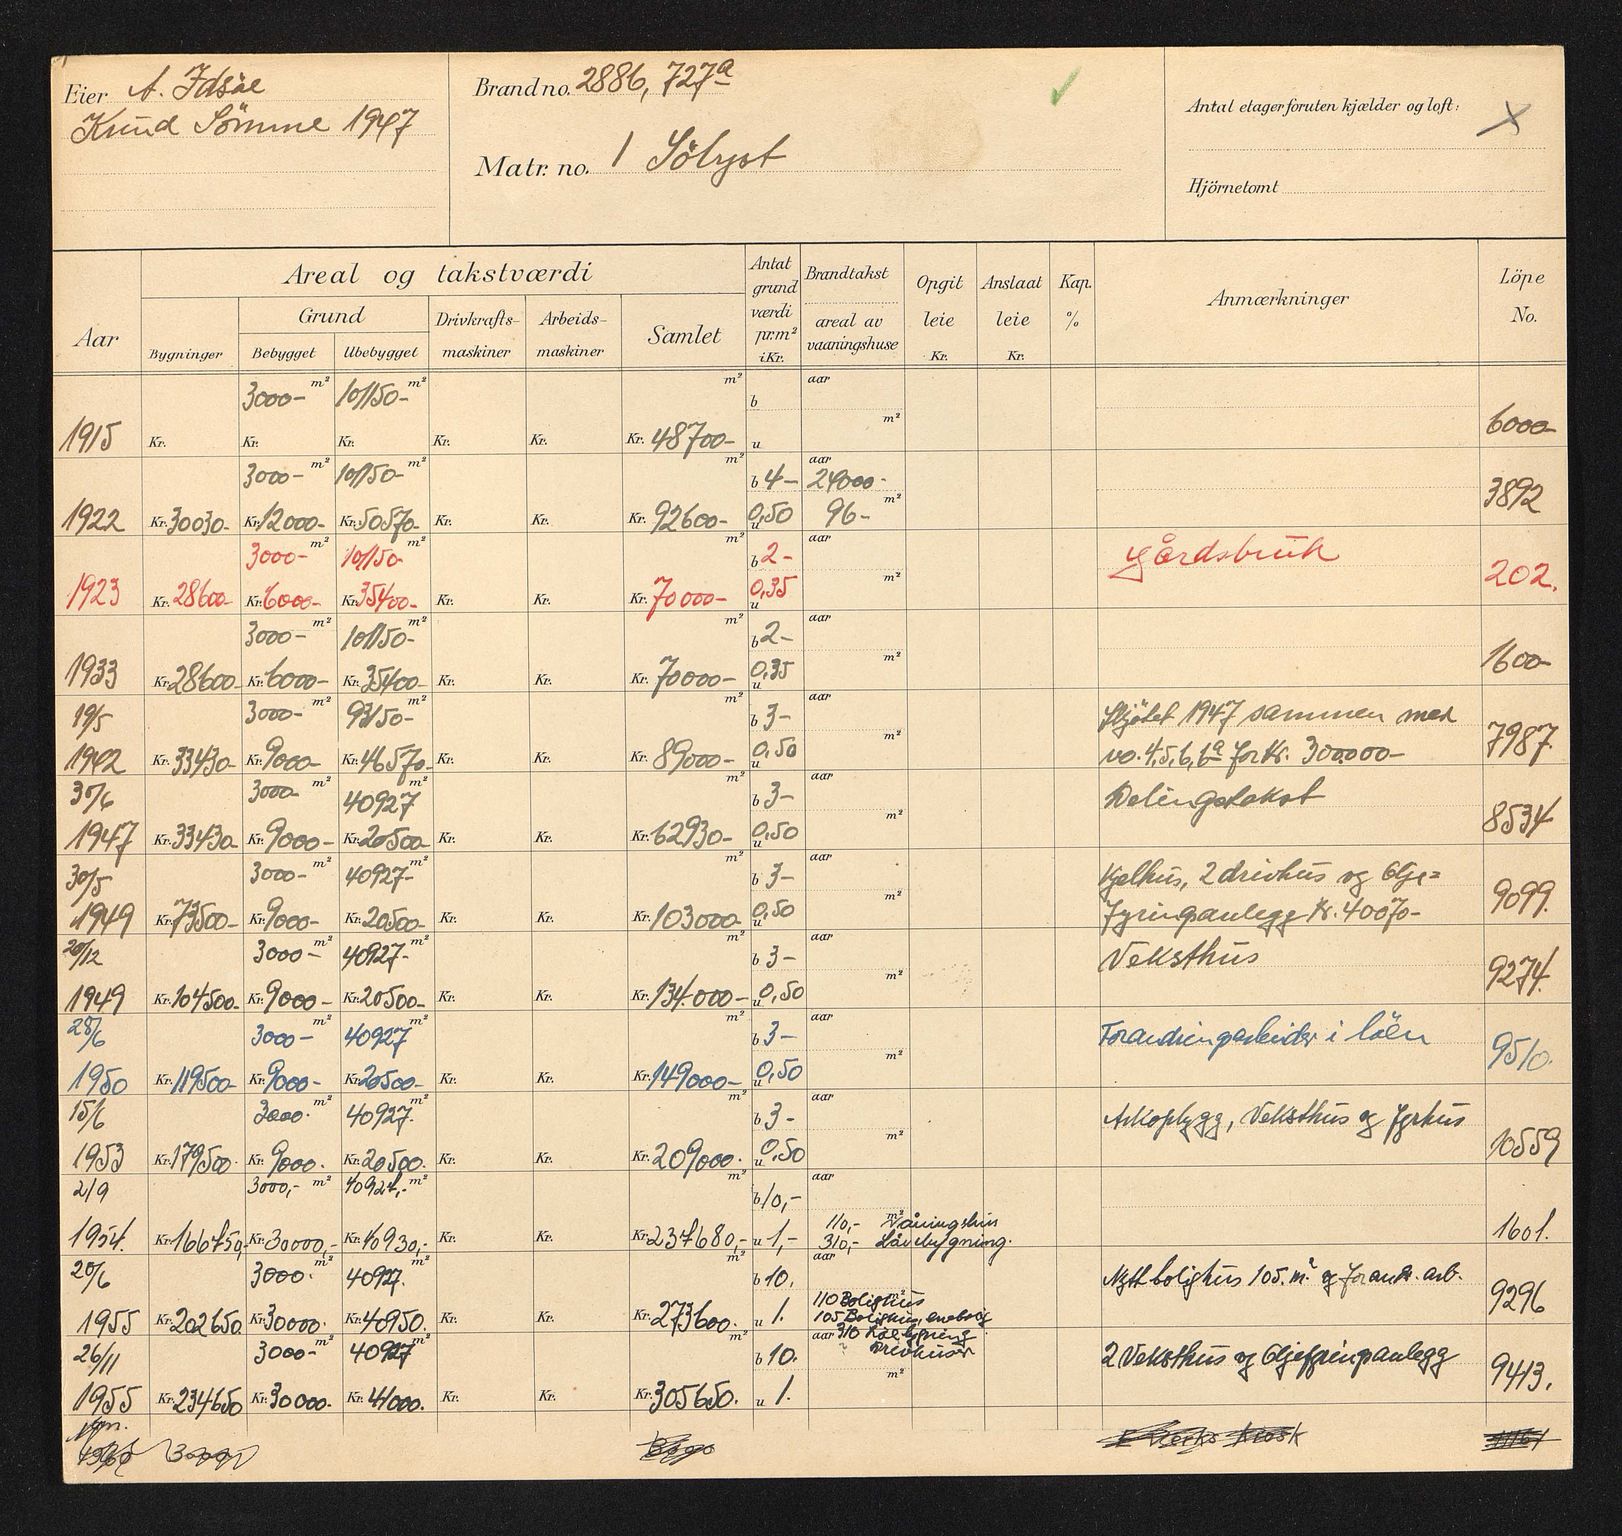 Eier A. Idsöe
Knud Sömme 1947
Brand no. 2886, 727a
Matr. no. 1 Sölyst
Antal etager foruten kjælder og loft:
Hjörnetomt
Aar
Areal og takstværdi
Bygninger
Grund
Bebygget Ubebygget
Drivkrafts-maskiner
Arbeids-maskiner
Samlet
Antat grund værdi pr. m² i Kr.
Brandtakst
areal av vaaningshuse
Opgit leie Kr.
Anslaat leie Kr.
Kap. %
Anmærkninger
Löpe No.
3000- m² 10150- m² m² b aar m²
1915 Kr. Kr. Kr. Kr. Kr. Kr. 48700- u 6000-
3000- m² 10150- m² m² b 4- aar 24000- m²
1922 Kr. 30030- Kr. 12000- Kr. 50570- Kr. Kr. Kr. 92600- u 0,50 96- 3892
3000- m² 10150- m² m² b 2- aar m² Gårdsbruk
1923 Kr. 28600- Kr. 6000- Kr. 35400- Kr. Kr. Kr. 70000- u 0,35 202.
3000- m² 10150- m² m² b 2- aar m²
1933 Kr. 28600- Kr. 6000- Kr. 35400- Kr. Kr. Kr. 70000- u 0,35 1600-
19/5 3000- m² 93150- m² m² b 3- aar m² Skjötet 1947 sammen med
1942 Kr. 33430- Kr. 9000- Kr. 46570- Kr. Kr. Kr. 89000- u 0,50 no. 4,5,6,6a for Kr. 300000- 7987.
30/6 3000- m² 40927 m² m² b 3- aar m² Delingstakst
1947 Kr. 33430 Kr. 9000- Kr. 20500- Kr. Kr. Kr. 62930- u 0,50 8534
30/5 3000- m² 40927- m² m² b 3- aar m² Kjelhus, 2 drivhus og Olje=
1949 Kr. 73500- Kr. 9000- Kr. 20500- Kr. Kr. Kr. 103000- u 0,50 fyringsanlegg Kr. 40070- 9099.
20/12 3000- m² 40927- m² m² b 3- aar m² Veksthus
1949 Kr. 104500- Kr. 9000- Kr. 20500- Kr. Kr. Kr. 134.000- u 0,50 9274.
28/6 3000- m² 40927 m² m² b 3- aar m² Forandringsarbeider i löen
1950 Kr. 119500- Kr. 9000- Kr. 20500- Kr. Kr. Kr. 149000- u 0,50 9510.
15/6 3000. m² 40927. m² m² b 3- aar m² Arkoppbygg, Veksthus og fyrhus
1953 Kr. 179500. Kr. 9000. Kr. 20500. Kr. Kr. Kr. 209000. u 0,50 10559
2/9 3000,- m² 40927,- m² m² b 10,- aar m²
1954. Kr. 166750,- Kr. 30000,- Kr. 40930,- Kr. Kr. Kr. 237680,- u 1,- 110,- Våningshus 1601.
310,- Låvebygning.
20/6 3000. m² 40927. m² m² b 10. aar m² Nytt bolighus 105. m² og forandr. arb.
1955 Kr. 202650. Kr. 30000. Kr. 40950. Kr. Kr. Kr. 273600. u 1. 110 Bolighus 9296
105 Bolighus, enebolig
310 Löebygning
Drivhuser
26/11 3000- m² 40927 m² m² b 10. aar m² 2 Veksthus og Oljefyringsanlegg
1955 Kr. 234650 Kr. 30000. Kr. 41000. Kr. Kr. Kr. 305650. u 1. 9413.
Kiosk